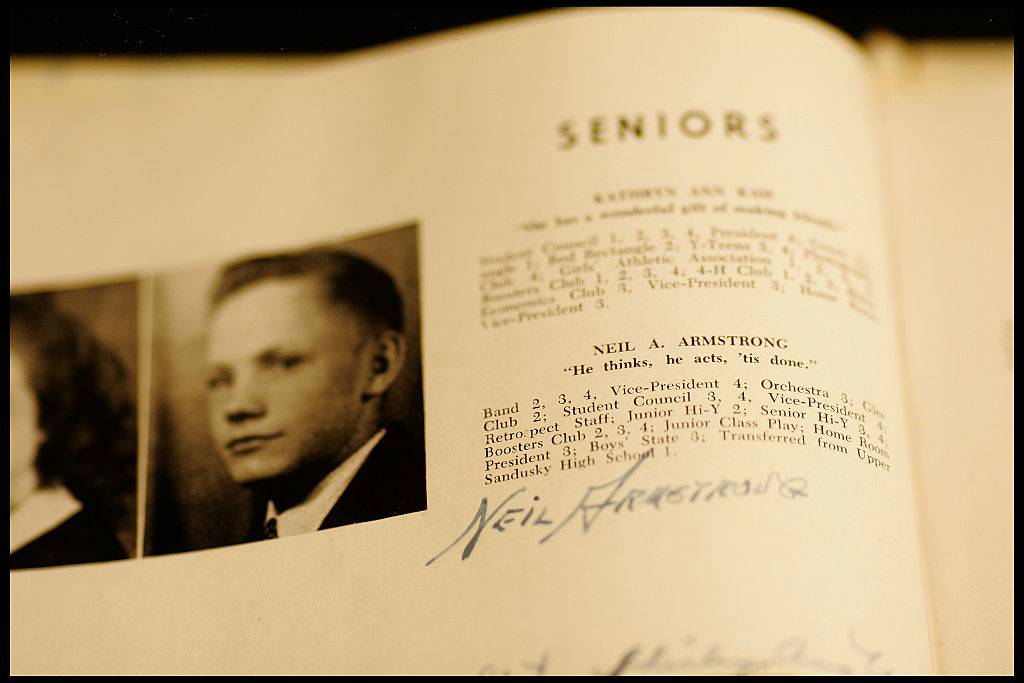 SENIORS
KATHRYN ANN
a wonderful gift of making
Student Council 1, 2, 3, 4; President
1; Red Rectangle 2; Y-Teens 3, 4;
Club 4; Girls' Athletic Association 1,
Boosters Club 1, 2, 3, 4; 4-H Club 1, 2, 3,
Economics Club 3, Vice-President 3; Home
Vice-President 3.
NEIL A. ARMSTRONG
"He thinks, he acts, 'tis done."
Band 2, 3, 4, Vice-President 4; Orchestra 3; Glee
Club 2; Student Council 3, 4, Vice-President 4;
Retrospect Staff; Junior Hi-Y 2; Senior Hi-Y 3, 4;
Boosters Club 2, 3, 4; Junior Class Play; Home Room
President 3; Boys' State 3; Transferred from Upper
Sandusky High School 1.
NEIL ARMSTRONG